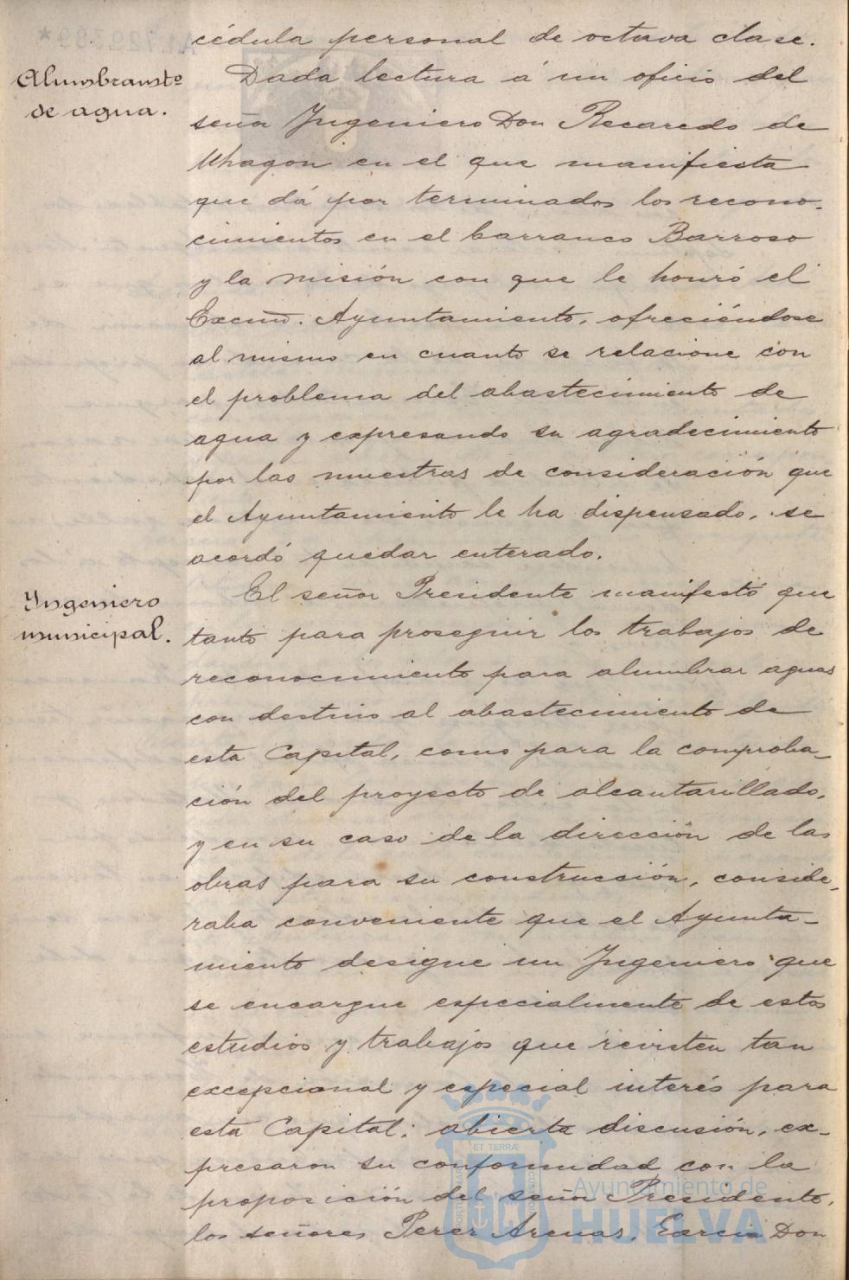 cédula personal de octava clase.
Alumbramtº
de agua.
Dada lectura á un oficio del
señor Ingeniero Don Recaredo de
Uhagon en el que manifiesta
que dá por terminados los recono-
cimientos en el barranco Barroso
y la misión con que le honró el
Excmo. Ayuntamiento, ofreciéndose
al mismo en cuanto se relacione con
el problema del abastecimiento de
agua y expresando su agradecimiento
por las muestras de consideración que
el Ayuntamiento le ha dispensado, se
acordó quedar enterado.
Ingeniero
municipal.
El señor Presidente manifestó que
tanto para proseguir los trabajos de
reconocimiento para alumbrar aguas
con destino al abastecimiento de
esta Capital, como para la comproba-
ción del proyecto de alcantarillado,
y en su caso de la dirección de las
obras para su construcción, conside-
raba conveniente que el Ayunta-
miento designe un Ingeniero que
se encargue especialmente de estos
estudios y trabajos que revisten tan
excepcional y especial interés para
esta Capital; abierta discusión, ex-
presaron su conformidad con la
proposición del señor Presidente,
los señores Perez Arenas, Garcia Don
ET TERRA
Ayuntamiento de
HUELVA